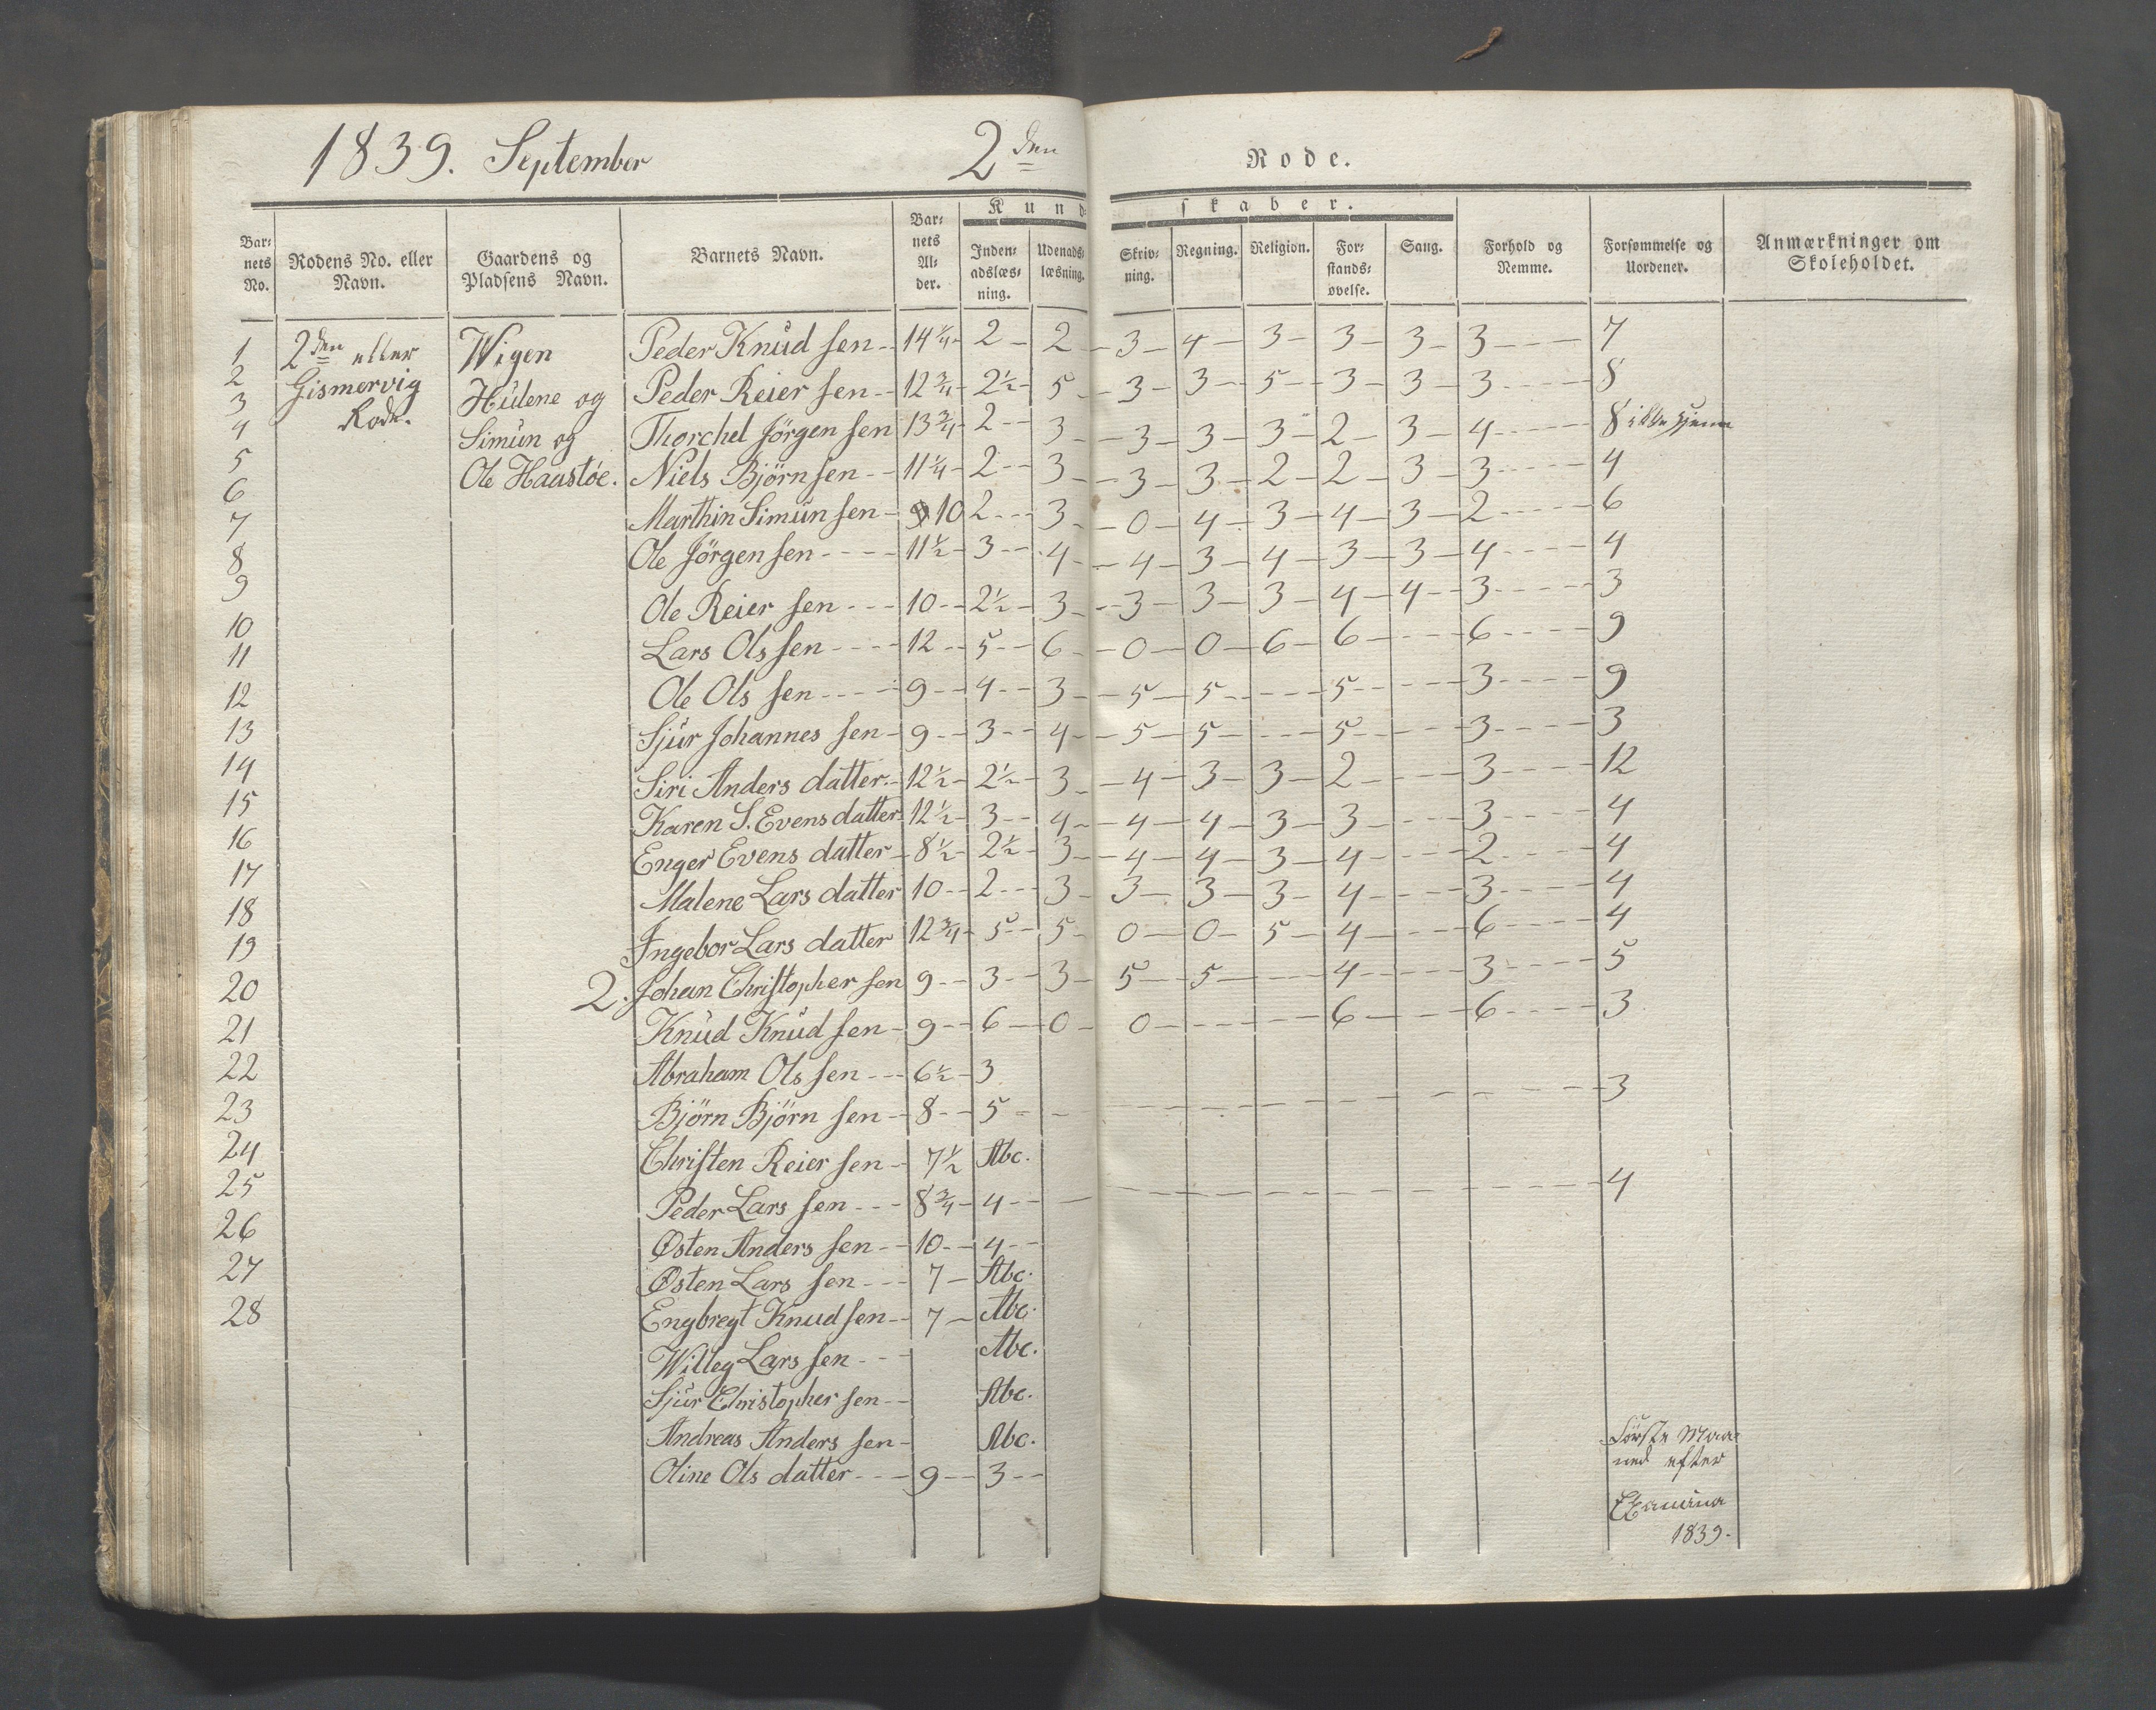 1839. September 2den Rode.
Kundskaber.
Barnets No. Rodens No. eller Navn. Gaardens og Pladsens Navn. Barnets Navn. Barnets Alder. Indenadslæsning. Udenadslæsning. Skrivning. Regning. Religion. Forstandsøvelse. Sang. Forhold og Nemme. Forsømmelse og Uordener. Anmærkninger om Skoleholdet.
1 2den eller Wigen Peder Knüdsen 14 1/4 2 2 3 4 3 3 3 3 7
2 Gismervig Hülene og Peder Reiersen 12 3/4 2 1/2 5 3 3 5 3 3 3 8
3 Rode. Simün og Thorchel Jörgensen 13 3/4 2 3 3 3 3 2 3 4 8
4 Ole Haastöe. Niels Björnsen 11 1/4 2 3 3 3 2 2 3 3 4
5 Marthin Simünsen 10 2 3 0 4 3 4 3 2 6
6 Ole Jörgensen 11 1/2 3 4 4 3 4 3 3 4 4
7 Ole Reiersen 10 2 1/2 3 3 3 3 4 4 3 3
8 Lars Olssen 12 5 6 0 0 6 6 6 9
9 Ole Olssen 9 4 3 5 5 5 3 9
10 Sjür Johannessen 9 3 4 5 5 5 3 3
11 Siri Andersdatter 12 1/2 2 1/2 3 4 3 3 2 3 12
12 Karen S. Evensdatter 12 1/2 3 4 4 4 3 3 3 4
13 Enger Evensdatter 8 1/2 2 1/2 3 4 4 3 4 2 4
14 Malene Larsdatter 10 2 3 3 3 3 4 3 4
15 Ingebor Larsdatter 12 3/4 5 5 0 0 5 4 6 4
16 2. Johan Christophersen 9 3 3 5 5 4 3 5
17 Knüd Knüdsen 9 6 0 0 6 6 3
18 Abraham Olssen 6 1/2 3
19 Björn Björnsen 8 5 3
20 Christen Reiersen 7 1/2 Abc.
21 Peder Larssen 8 3/4 4 4
22 Østen Anderssen 10 4
23 Østen Larssen 7 Abc.
24 Engbregt Knudsen 7 Abc.
25 Willeg Larssen Abc.
26 Sjür Christophersen Abc.
27 Andreas Anderssen Abc.
28 Oline Olsdatter 9 3
Förste Maa-
ned efter
Examina
1839.